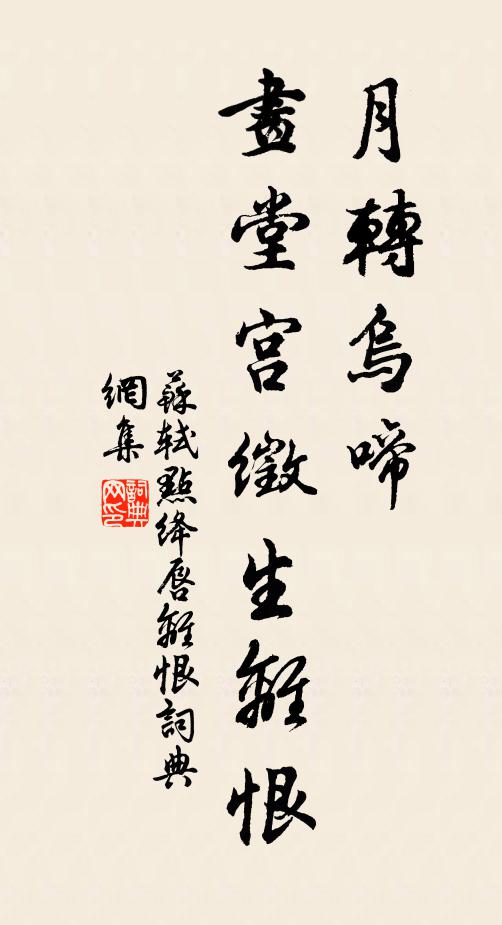 月轉烏啼
畫堂宮徵生離恨
蘇軾點絳唇離恨詞典
網集
詞典
网印